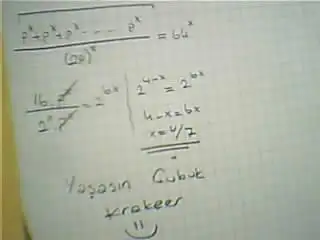 p^x+p^x+p^x ----- p^x / (2p)^x = 64^x
16 · p^x / 2^x · p^x = 2^6x
2^4-x = 2^6x
4-x=6x
x=4/7
Yaşasın Çubuk
Kraker